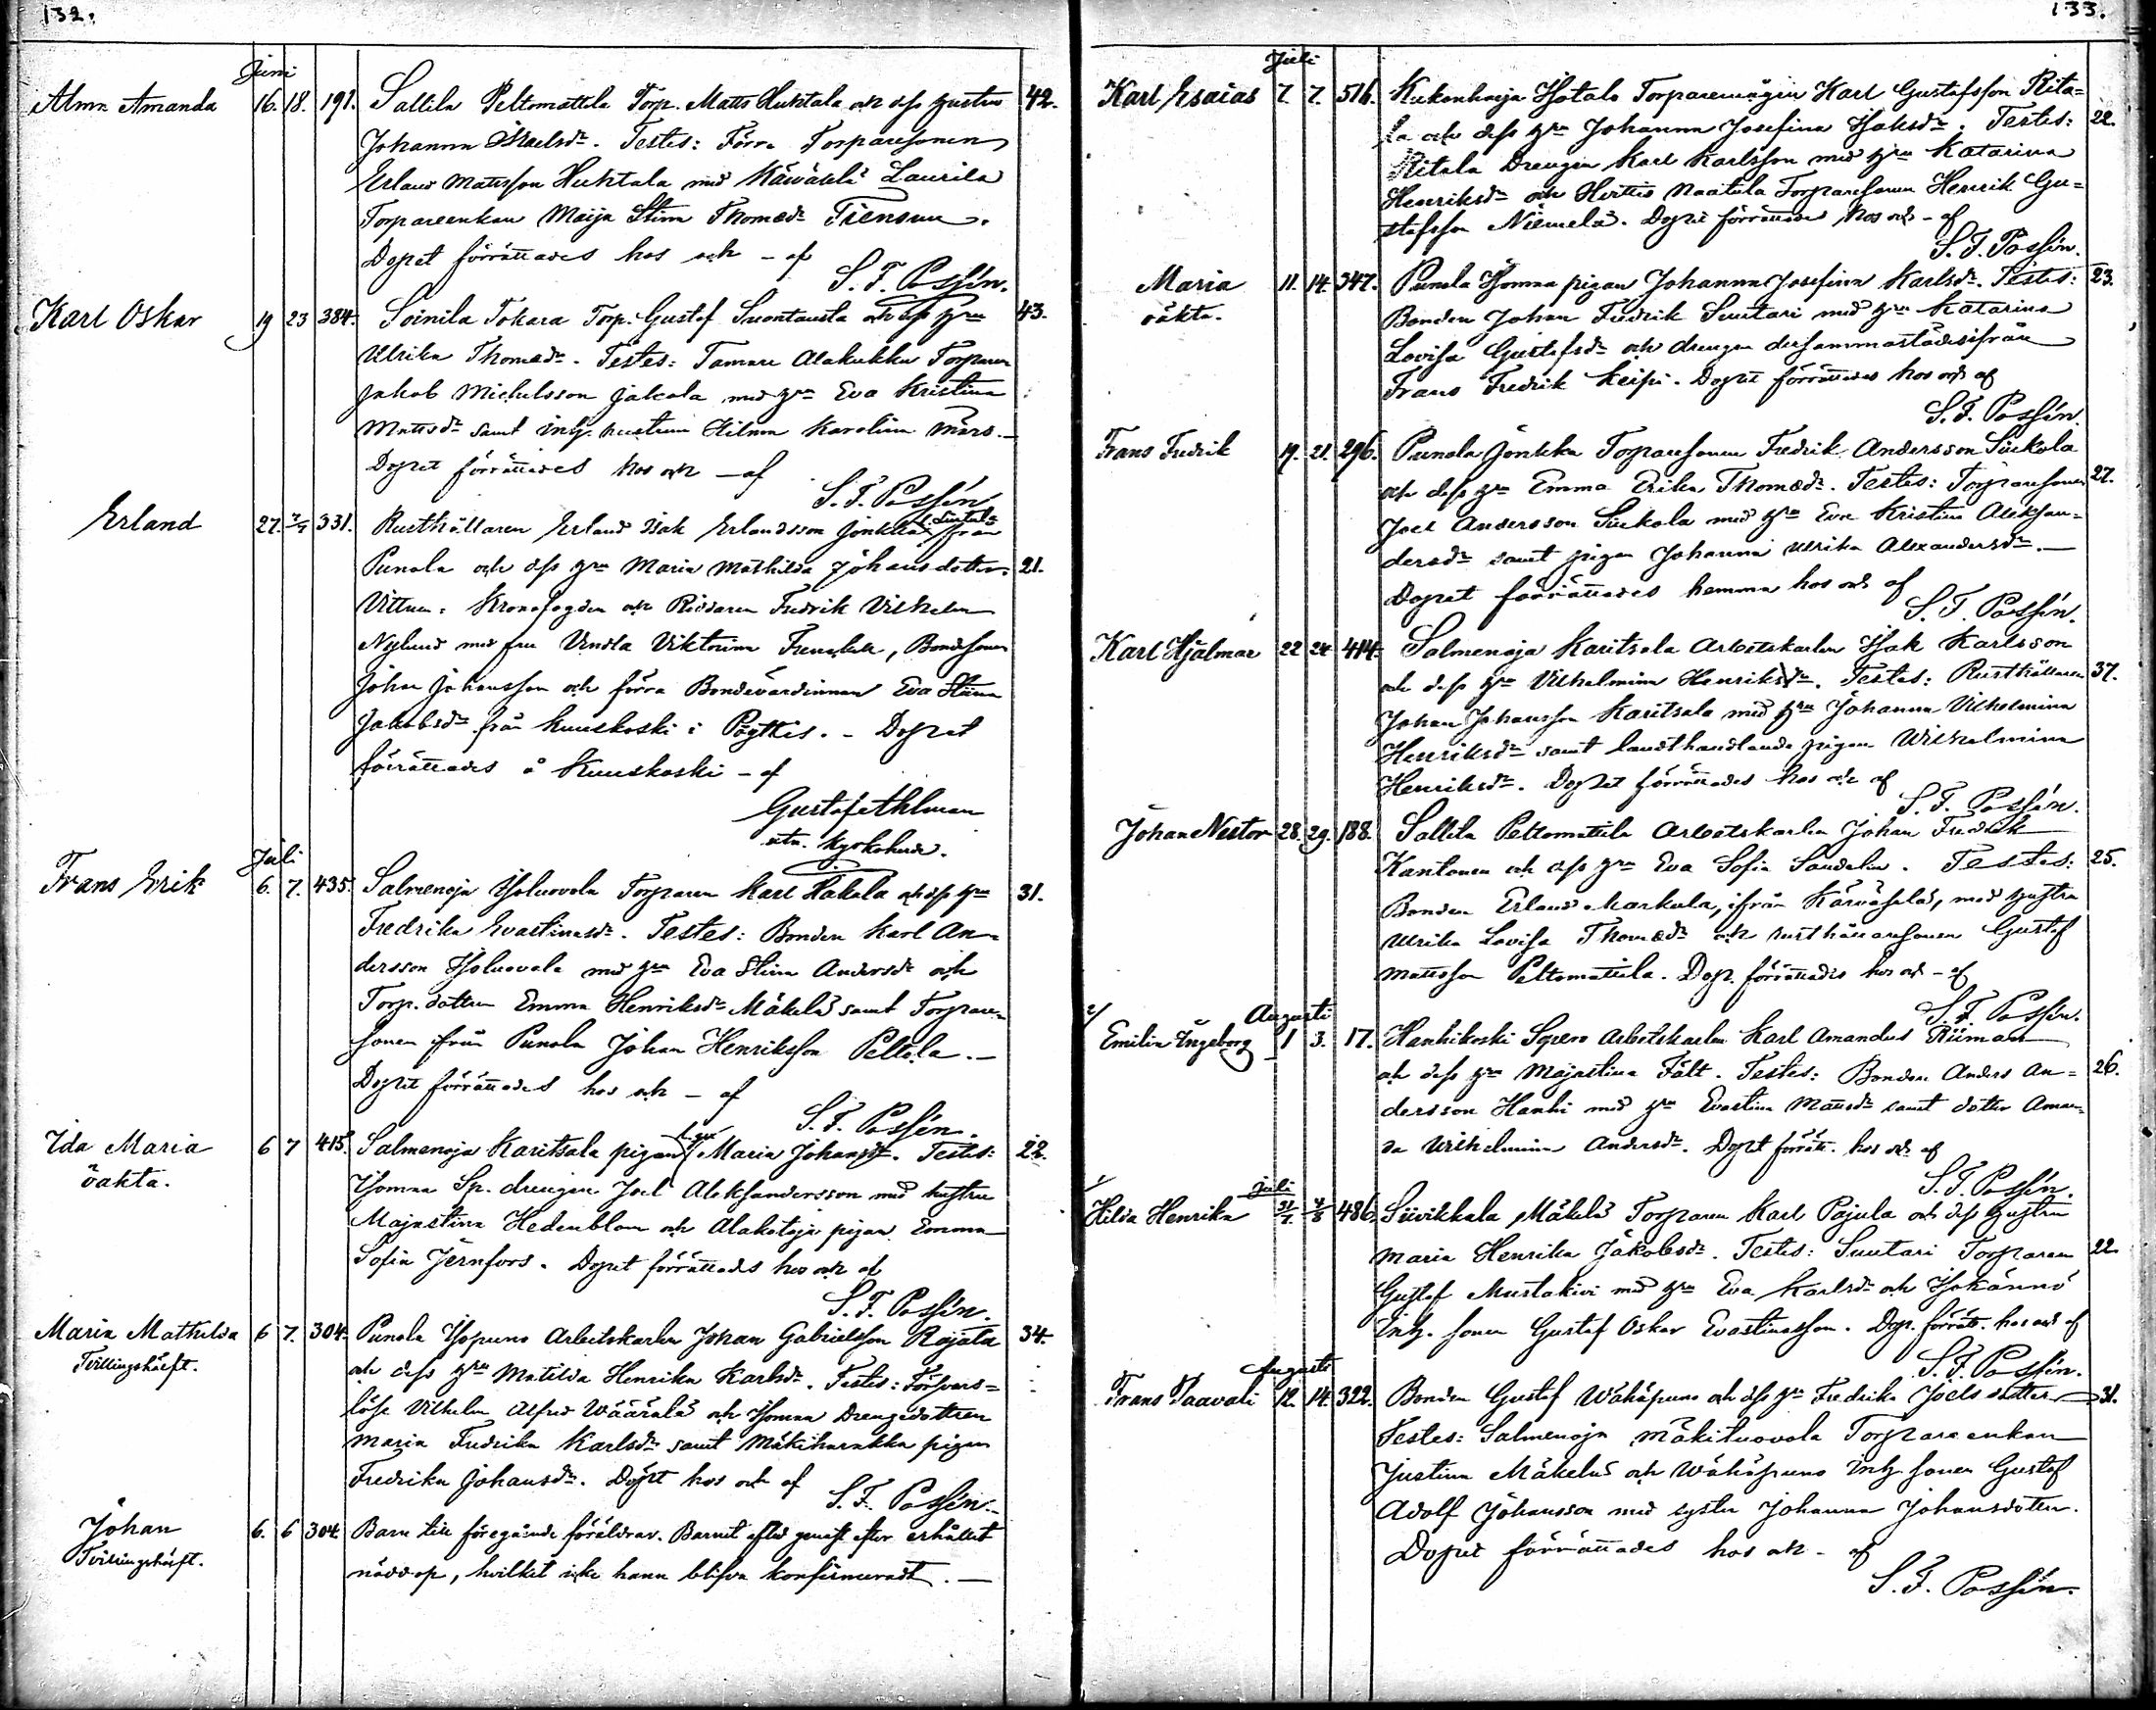 132.
Juni
Alma Amanda 16. 18. 191. Sallila Peltomattila Torp. Matts Huhtala och dess hustru 42.
Johanna Israelsdr. Testes: Förre Torparesonen
Erland Mattsson Huhtala med Laurila
Torpareenkan Maija Stina Thomasdr Tiensuu.
Dopet förrättades hos och - af
S. F. Possén.
Karl Oskar 19 23 384. Soinila Tokara Torp. Gustaf Suontausta och dess hru 43.
Ulrika Thomasdr. Testes: Tamare Alakukku Torparen
Jakob Michelsson Jakola med hru Eva Kristina
Mattsdr samt inh. hustrun Hilma Karolina Mårs.—
Dopet förrättades hos och - af
S. F. Possén
Erland 27. 2/7 331. Rusthållaren Erland Isak Erlandsson Jonkka från
Punola och dess hru Maria Mathilda Johansdotter. 21.
Vittnen: Kronofogden och Riddaren Fredrik Vilhelm
Nylund med fru Vendla Viktorina, Bondesonen
Johan Johansson och förra Bondevärdinnan Eva Stina
Jakobsdr från Kuuskoski i Pöytkis. - Dopet
förrättades å Kuuskoski - af
Gustaf Ahlman
utn. Kyrkoherde.
Juli
Frans Erik 6. 7. 435. Salmenoja Isoluovola Torparen Karl Hakala och dess hru 31.
Fredrika Evastinasdr. Testes: Bonden Karl An-
dersson Isoluovola med hru Eva Stina Andersdr och
Torp. dottren Emma Henriksdr Mäkelä samt Torpare-
sonen från Punola Johan Henriksson Peltola.—
Dopet förrättades hos och - af
S. F. Possén.
Ida Maria 6 7 415. Salmenoja Karitsala pigan Maria Johansdr. Testes: 22.
oäkta. Isomaa Sp. drengen Joel Aleksandersson med hustru
Majastina Hedenblom och Alakotoja pigan Emma
Sofia Jernfors. Dopet förrättades hos och af
S. F. Possén.
Maria Mathilda 6 7. 304. Punola Isopuno Arbetskarlen Johan Gabrielsson Rajala 34.
Tvillingshälft. och dess hru Matilda Henrika Karlsdr. Testes: Försvars-
löse Vilhelm Alfred Wäärälä och Isomaa Drengedottren
Maria Fredrika Karlsdr samt Mäkiharakka pigan
Fredrika Johansdr. Döpt hos och af
S. F. Possén.
Johan 6. 6 304 Barn till föregående föräldrar. Barnet afled genast efter erhållet
Tvillingshälft. nöddop, hvilket icke hann blifva konfirmeradt.—
133.
Juli
Karl Esaias 7. 7. 516. Kukonharja Isotalo Torparemågen Karl Gustafsson Rita-
la och dess hru Johanna Josefina Isaksdr. Testes: 22.
Ritala Drengen Karl Karlsson med hru Katarina
Henriksdr och Hertis Naatula Torparesonen Henrik Gu-
stafsson Niemelä. Dopet förrättades hos och - af
S. F. Possén.
Maria 11. 14. 347. Punola Isomaa pigan Johanna Josefina Karlsdr. Testes: 23.
oäkta. Bonden Johan Fredrik Suutari med hru Katarina
Lovisa Gustafsdr och drengen dersammastädesifrån
Frans Fredrik Keipi. Dopet förrättades hos och af
S. F. Possén.
Frans Fredrik 19. 21. 296. Punola Jonkka Torparesonen Fredrik Andersson Siukola
och dess hru Emma Erika Thomasdr. Testes: Torparesonen 27.
Joel Andersson Siukola med hru Eva Kristina Aleksan-
dersdr samt pigan Johanna Ulrika Alexandersdr.—
Dopet förrättades hemma hos och af
S. F. Possén.
Karl Hjalmar 22 24 414. Salmenoja Karitsala Arbetskarlen Isak Karlsson
och dess hru Vilhelmina Henriksdr. Testes: Rusthållaren 37.
Johan Johansson Karitsala med hru Johanna Vilhelmina
Henriksdr samt landthandlande pigan Wilhelmina
Henriksdr. Dopet förrättades hos och af
S. F. Possén.
Johan Nestor 28. 29. 188. Sallila Peltomattila Arbetskarlen Johan Fredrik
Kantonen och dess hru Eva Sofia Sandelin. Testes: 25.
Bonden Erland Markula, ifrån Karvasela, med hustru
Ulrika Lovisa Thomasdr och rusthållaresonen Gustaf
Mattsson Peltomattila. Dop. förrättades hos och - af
S. F. Possén.
Augusti
Emilia Ingeborg 1 3. 17. Hanhikoski Sepero Arbetskarlen Karl Amandus Riiman
och dess hru Majastina Fält. Testes: Bonden Anders An- 26.
dersson Hanhi med hru Evastina Mattsdr samt dotter Aman-
da Wilhelmina Andersdr. Dopet förrätt. hos och af
S. F. Possén.
Juli
Hilda Henrika 31/7. 4/8 486. Siivikkala Mäkelä Torparen Karl Pajula och dess hustru
Maria Henrika Jakobsdr. Testes: Suutari Torparen 22.
Gustaf Mustakivi med hru Eva Karlsdr och Isokännö
Inh. sonen Gustaf Oskar Evastinasson. Dop. förrätt. hos och af
S. F. Possén.
Augusti
Frans Paavali 12. 14. 322. Bonden Gustaf Wähäpuno och dess hru Fredrika Joelsdotter.— 31.
Testes: Salmenoja Mäkiluovola Torpareenkan
Justina Mäkelä och Wähäpuno Inh. sonen Gustaf
Adolf Johansson med syster Johanna Johansdotter.
Dopet förrättades hos och - af
S. F. Possén.